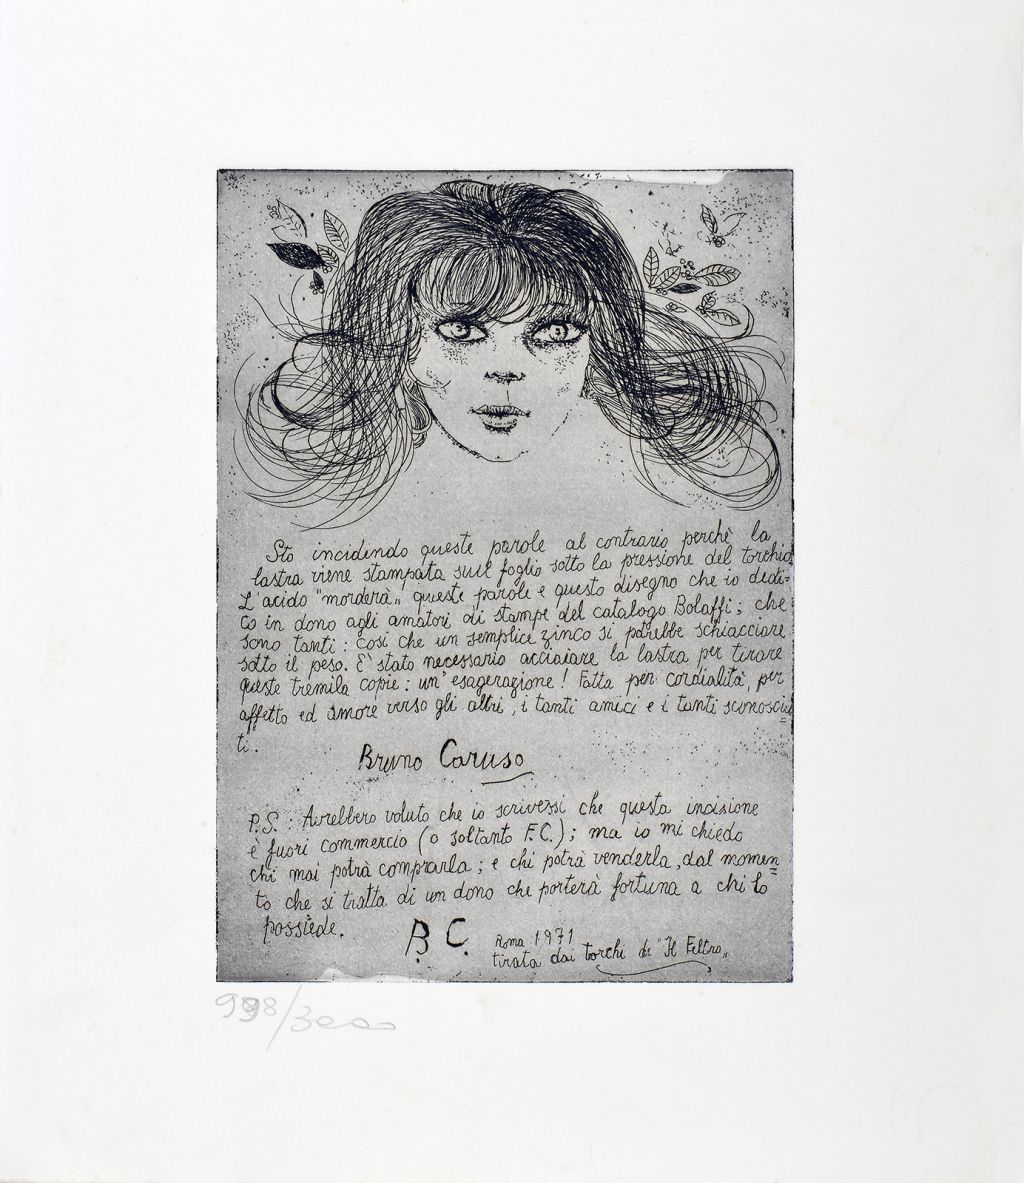 Sto incidendo queste parole al contrario perchè la
lastra viene stampata sul foglio sotto la pressione del torchio
L'acido "morderà" queste parole e questo disegno che io dedi=
co in dono agli amatori di stampe del catalogo Bolaffi; che
sono tanti: così che un semplice zinco si potrebbe schiacciare
sotto il peso. E' stato necessario acciaiare la lastra per tirare
queste tremila copie: un'esagerazione! Fatta per cordialità, per
affetto ed amore verso gli altri, i tanti amici e i tanti sconosciu=
ti.
Bruno Caruso
P.S.: Avrebbero voluto che io scrivessi che questa incisione
è fuori commercio (o soltanto F.C.); ma io mi chiedo
chi mai potrà comprarla; e chi potrà venderla, dal momen=
to che si tratta di un dono che porterà fortuna a chi lo
possiede.
B.C. Roma 1971
tirata dai torchi de "Il Feltro"
998/3000